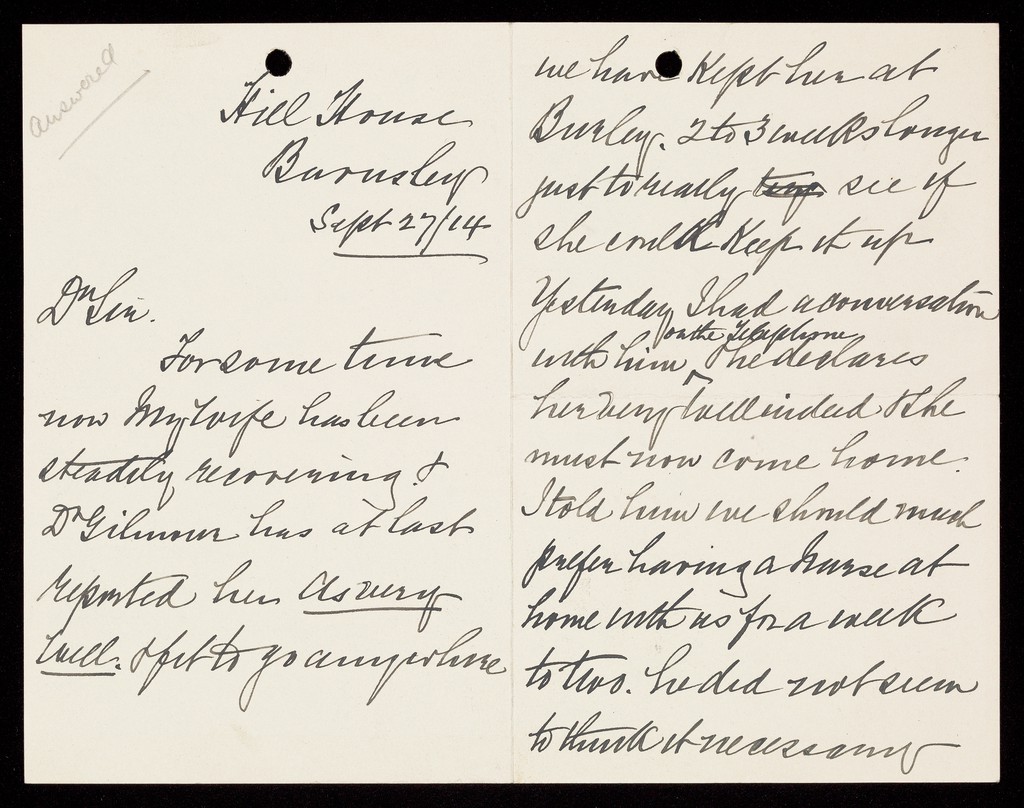 answered
Hill House
Barnsley
Sept 27/14
Dr Sir.
For some time
now My wife has been
steadily recovering. &
Dr Gilmour has at last
reported her as very
well. & fit to go anywhere
we have Kept her at
Burley. 2 to 3 weeks longer
just to really see if
she could Keep it up
Yesterday I had a conversation
on the Telephone
with him he declares
her very well indeed & she
must now come home.
I told him we should much
prefer having a Nurse at
home with us for a week
to two. he did not seem
to think it necessary